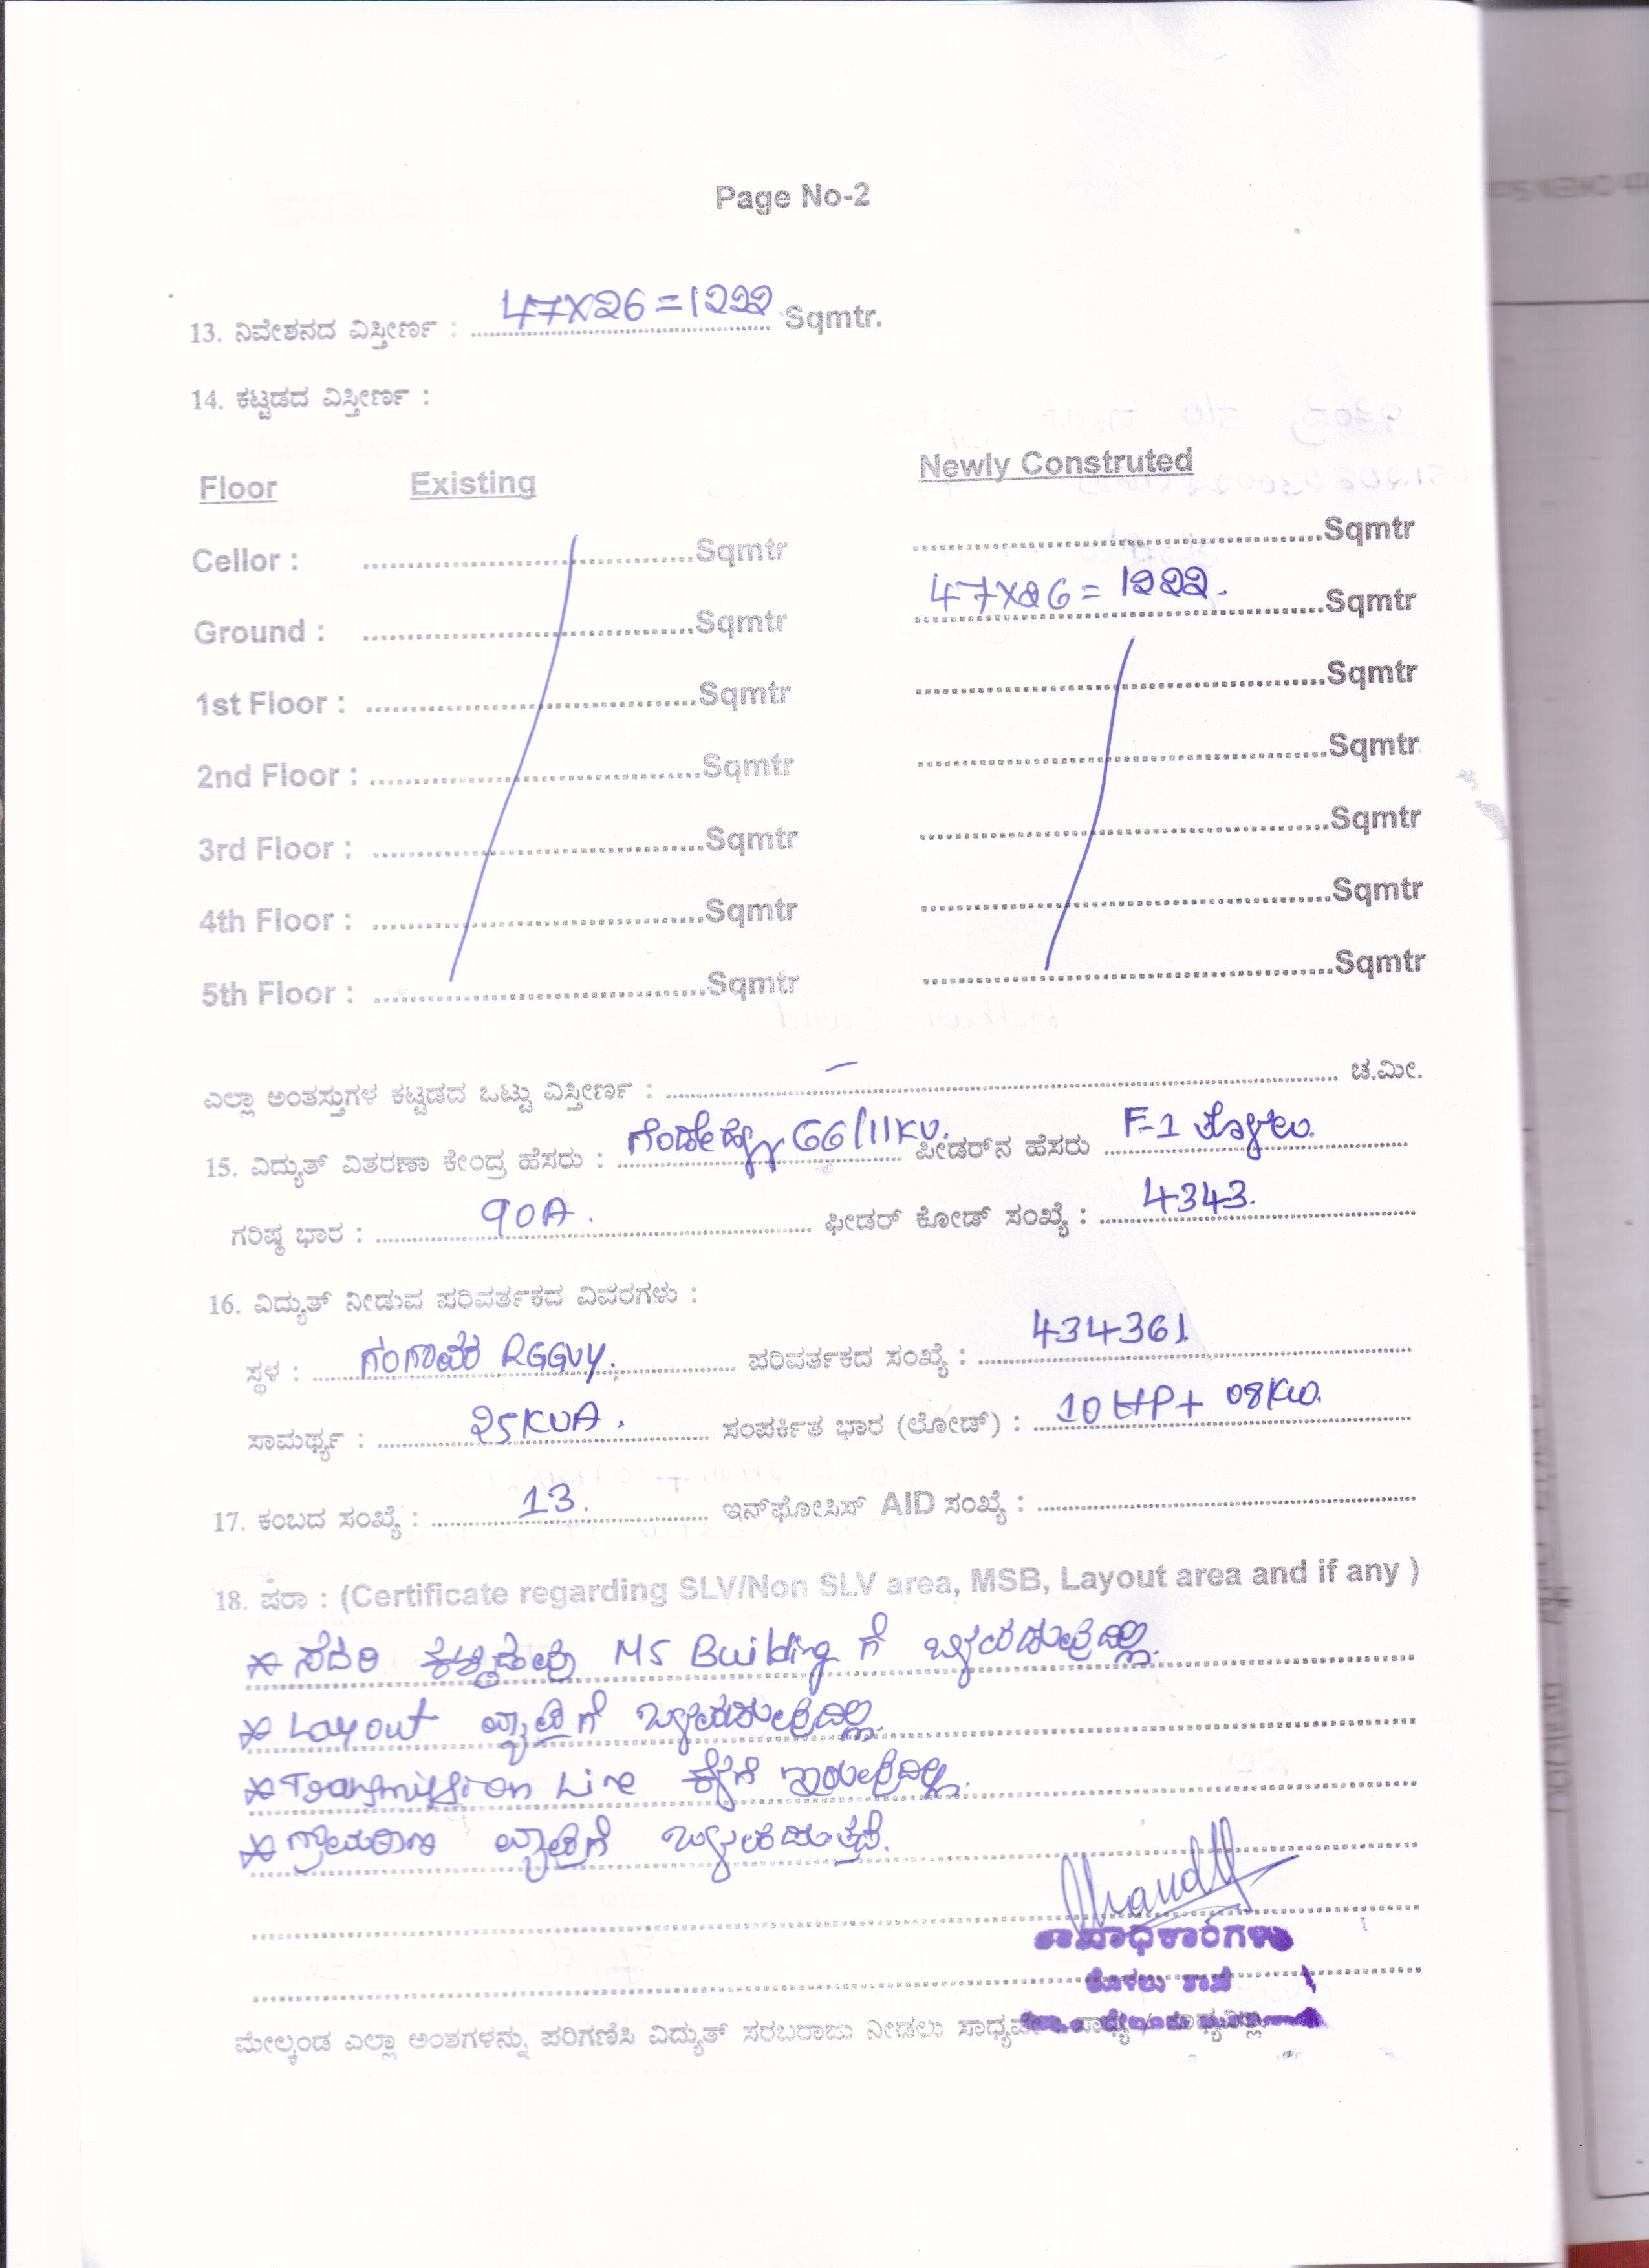 Page No-2
13. ನಿವೇಶನದ ವಿಸ್ತೀರ್ಣ : 47x26=1222 Sqmtr.
14. ಕಟ್ಟಡದ ವಿಸ್ತೀರ್ಣ :
Floor Existing Newly Construted
Cellor : Sqmtr Sqmtr
Ground : Sqmtr 47x26= 1222. Sqmtr
1st Floor : Sqmtr Sqmtr
2nd Floor : Sqmtr Sqmtr
3rd Floor : Sqmtr Sqmtr
4th Floor : Sqmtr Sqmtr
5th Floor : Sqmtr Sqmtr
ಎಲ್ಲಾ ಅಂತಸ್ತುಗಳ ಕಟ್ಟಡದ ಒಟ್ಟು ವಿಸ್ತೀರ್ಣ : – ಚ.ಮೀ.
15. ವಿದ್ಯುತ್ ವಿತರಣಾ ಕೇಂದ್ರ ಹೆಸರು : 66/11KV. ಫೀಡರ್‌ನ ಹೆಸರು F-1
ಗರಿಷ್ಠ ಭಾರ : 90A. ಫೀಡರ್ ಕೋಡ್ ಸಂಖ್ಯೆ : 4343.
16. ವಿದ್ಯುತ್ ನೀಡುವ ಪರಿವರ್ತಕದ ವಿವರಗಳು :
ಸ್ಥಳ : RGGVY. ಪರಿವರ್ತಕದ ಸಂಖ್ಯೆ : 434361
ಸಾಮರ್ಥ್ಯ : 25KVA. ಸಂಪರ್ಕಿತ ಭಾರ (ಲೋಡ್) : 10HP+ 08KW.
17. ಕಂಬದ ಸಂಖ್ಯೆ : 13. ಇನ್‌ಫೋಸಿಸ್ AID ಸಂಖ್ಯೆ :
18. ಷರಾ : (Certificate regarding SLV/Non SLV area, MSB, Layout area and if any )
* ಸದರಿ ಕಟ್ಟಡವು MS Building ಗೆ ಒಳಪಡುವುದಿಲ್ಲ.
* Layout ವ್ಯಾಪ್ತಿಗೆ ಒಳಪಡುವುದಿಲ್ಲ.
* Transmission Line ಕೆಳಗೆ ಇರುವುದಿಲ್ಲ.
* ಗ್ರಾಮಠಾಣ ವ್ಯಾಪ್ತಿಗೆ ಒಳಪಡುತ್ತದೆ.
ಶಾಖಾಧಿಕಾರಿಗಳು
ಮೇಲ್ಕಂಡ ಎಲ್ಲಾ ಅಂಶಗಳನ್ನು ಪರಿಗಣಿಸಿ ವಿದ್ಯುತ್ ಸರಬರಾಜು ನೀಡಲು